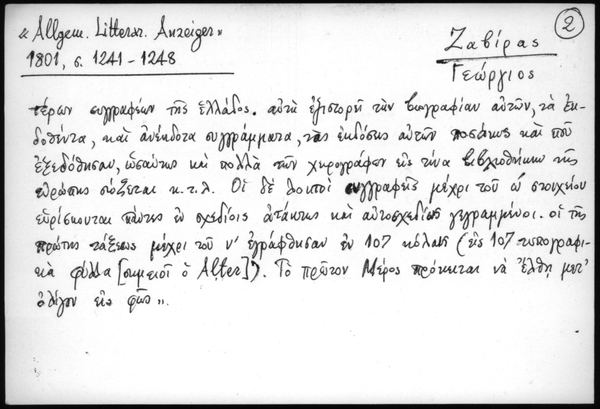 «Allgem. Litterar. Anzeiger»
1801, σ. 1241-1248
2
Ζαβίρας
Γεώργιος
τέρων συγγραφέων τῆς Ἑλλάδος. αὐτὰ ἐξιστορεῖ τὴν βιογραφίαν αὐτῶν, τὰ ἐκ-
δοθέντα, καὶ ἀνέκδοτα συγγράμματα, τὰς ἐκδόσεις αὐτῶν ποσάκις καὶ ποῦ
ἐξεδόθησαν, ὡσαύτως καὶ πολλὰ τῶν χειρογράφων εἰς τίνα βιβλιοθήκην τῆς
εὐρώπης σώζεται κ.τ.λ. Οἱ δὲ λοιποὶ συγγραφεῖς μέχρι τοῦ ω στοιχείου
εὑρίσκονται πάντες ἐν σχεδίοις ἀτάκτως καὶ αὐτοσχεδίως γεγραμμένοι. οἱ τῆς
πρώτης τάξεως μέχρι τοῦ ν' ἐγράφθησαν ἐν 107 κόλαις (εἰς 107 τυπογραφι-
κὰ φύλλα [σημειοῖ ὁ Alter]). Τὸ πρῶτον Μέρος πρόκειται νὰ ἔλθῃ μετ'
ὀλίγον εἰς φῶς».